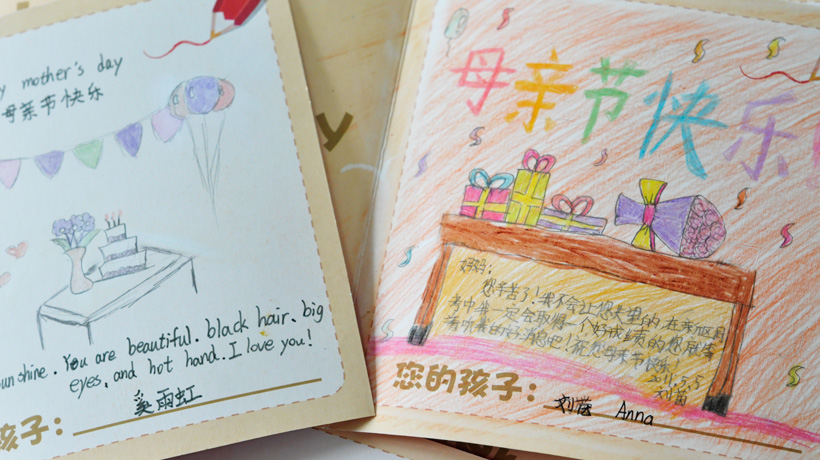 y mother's day
母亲节快乐
sunshine. You are beautiful. black hair, big
eyes, and hot hand. I love you!
孩子:
奚雨虹
y
母亲节快乐
妈妈:
您辛苦了!我不会让您失望的,在
考中我一定会取得一个好成绩的,您
的好消息吧!祝您母亲节快乐!
刘茵
您的孩子:
刘茵 Anna